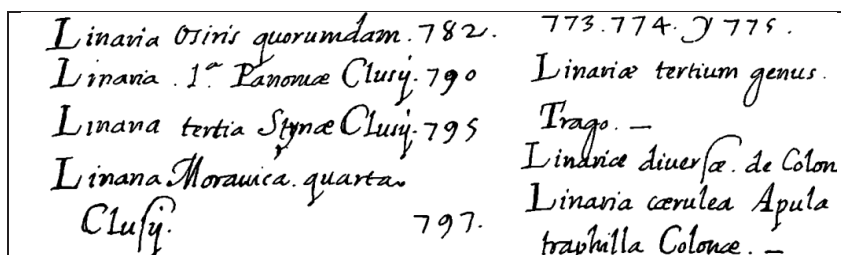 Linaria Osiris quorumdam. 782.
Linaria. 1.ª Panoniæ Clusij. 790
Linaria tertia Styriæ Clusij. 795
Linaria Morauica. quarta.
Clusij. 797.
773. 774. y 775.
Linariæ tertium genus.
Trago. —
Linariæ diuersæ. de Colon
Linaria cærulea Apula
traphilla Colonæ. —